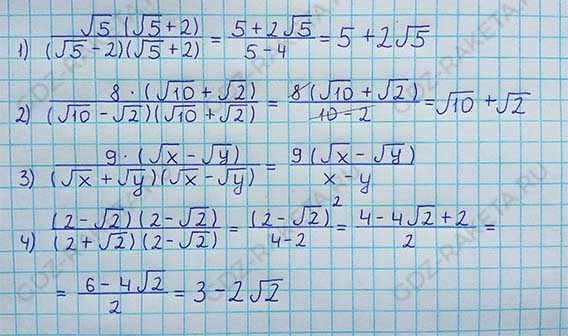 1) √5 (√5+2) / (√5-2)(√5+2) = 5+2√5 / 5-4 = 5+2√5
2) 8·(√10+√2) / (√10-√2)(√10+√2) = 8(√10+√2) / 10-2 = √10+√2
3) 9·(√x-√y) / (√x+√y)(√x-√y) = 9(√x-√y) / x-y
4) (2-√2)(2-√2) / (2+√2)(2-√2) = (2-√2)² / 4-2 = 4-4√2+2 / 2 =
= 6-4√2 / 2 = 3-2√2
GDZ-RAKETA.RU